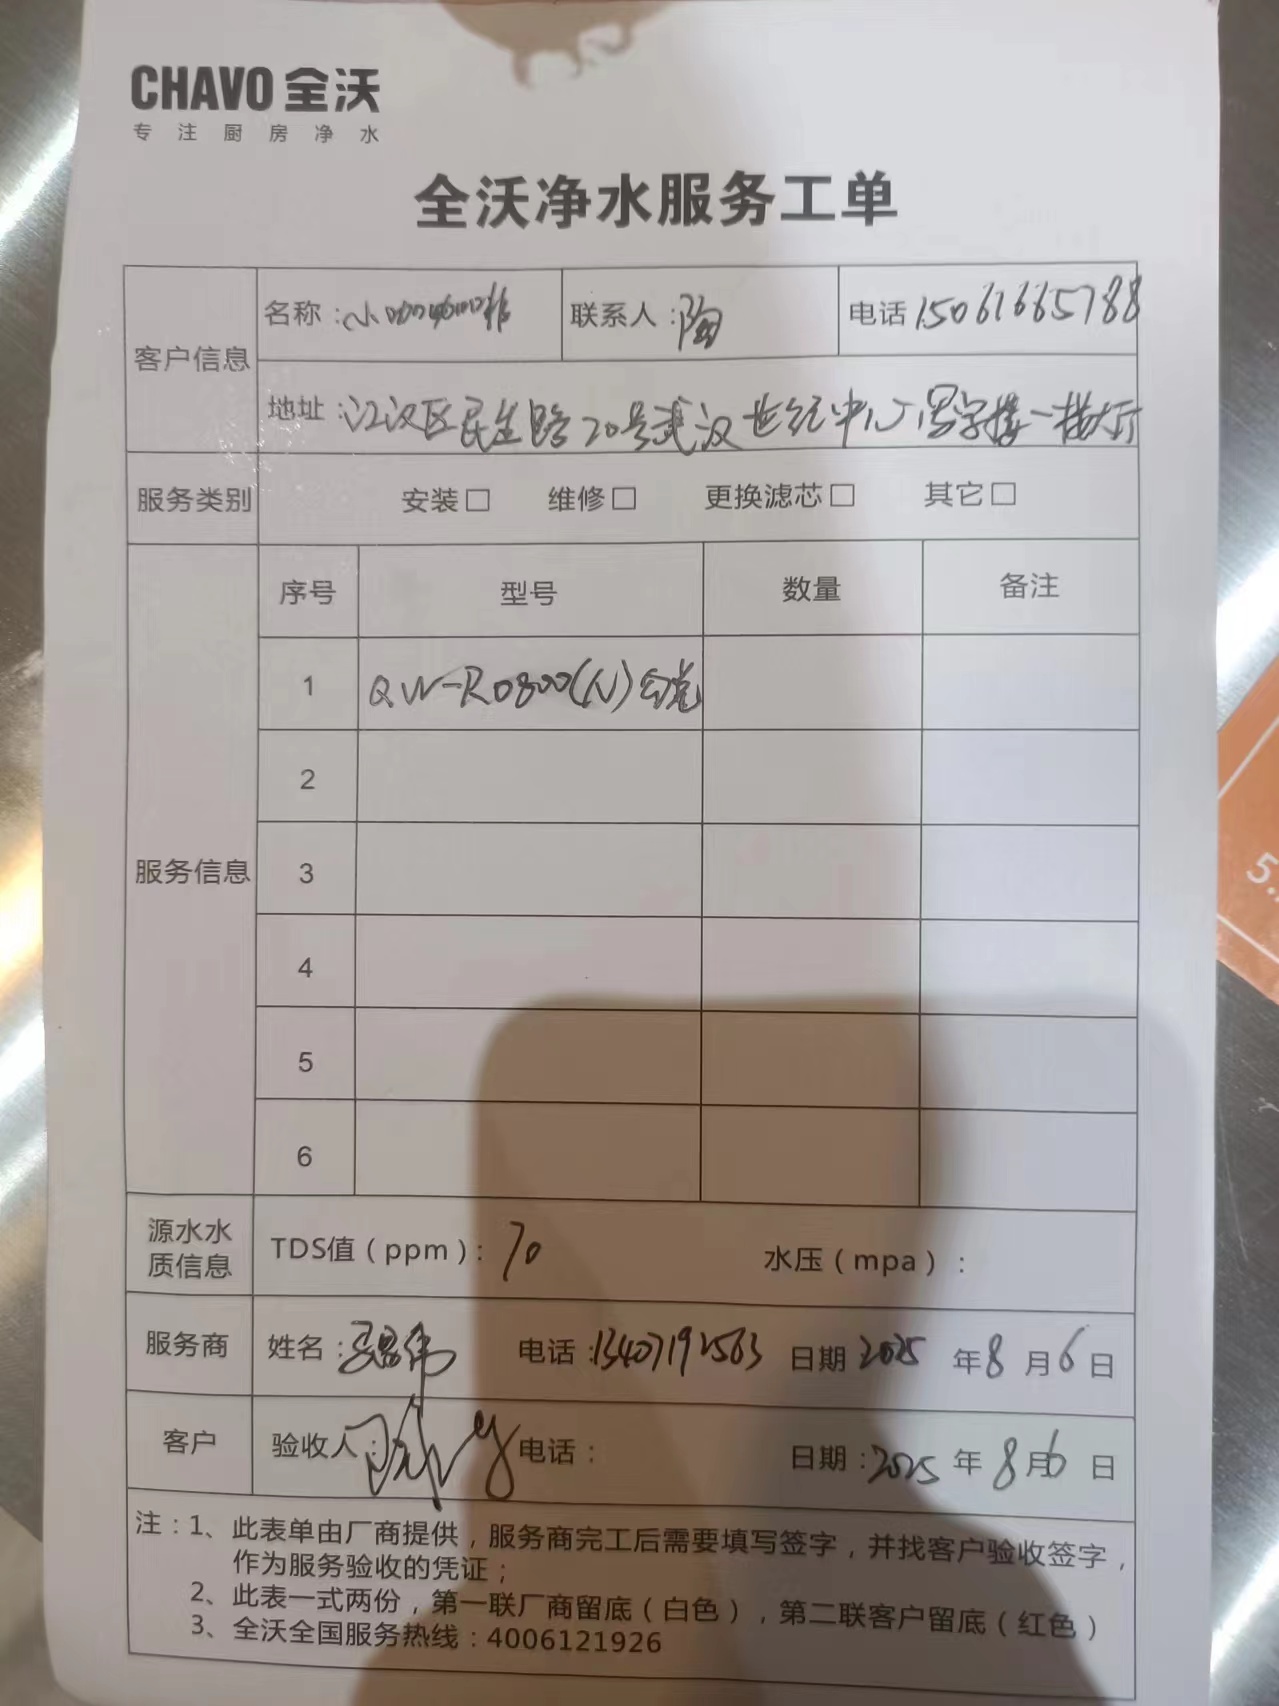 CHAVO 全沃
专注厨房净水
全沃净水服务工单
客户信息
名称：小咖咖啡
联系人：陶
电话 15061665788
地址：江汉区民生路20号武汉世纪中心写字楼一楼大厅
服务类别 安装□ 维修□ 更换滤芯□ 其它□
服务信息
序号 型号 数量 备注
1 QW-RO800(N)
2
3
4
5
6
源水水质信息
TDS值（ppm）：70 水压（mpa）：
服务商 姓名： 电话：13407192563 日期 2025 年 8 月 6 日
客户 验收人： 电话： 日期：2025 年 8 月 6 日
注：1、此表单由厂商提供，服务商完工后需要填写签字，并找客户验收签字，
作为服务验收的凭证；
2、此表一式两份，第一联厂商留底（白色），第二联客户留底（红色）
3、全沃全国服务热线：4006121926
5.